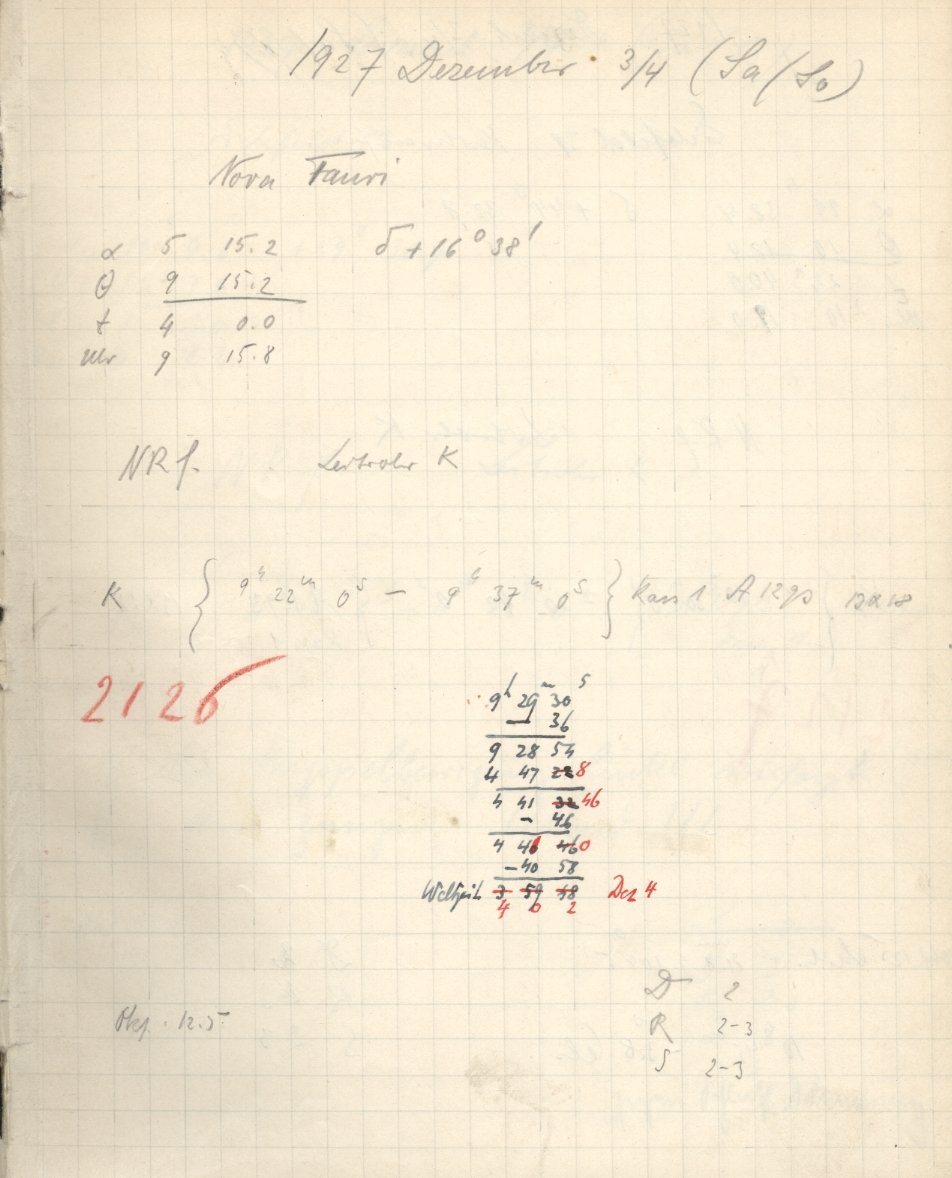 1927 Dezember 3/4 (Sa/So)
Nova Tauri
α 5 15.2 δ +16° 38'
θ 9 15.2
t 4 0.0
Uhr 9 15.8
NRf. Leitrohr K
K { 9h 22m 0s – 9h 37m 0s } Kass 1
2126
9h 29m 30s
– 36
9 28 54
4 47 8
4 41 46
– 46
4 41 0
– 40 58
Weltzeit 3 59 48 Dez 4
4 0 2
Okf. 12.5
D 2
R 2-3
S 2-3